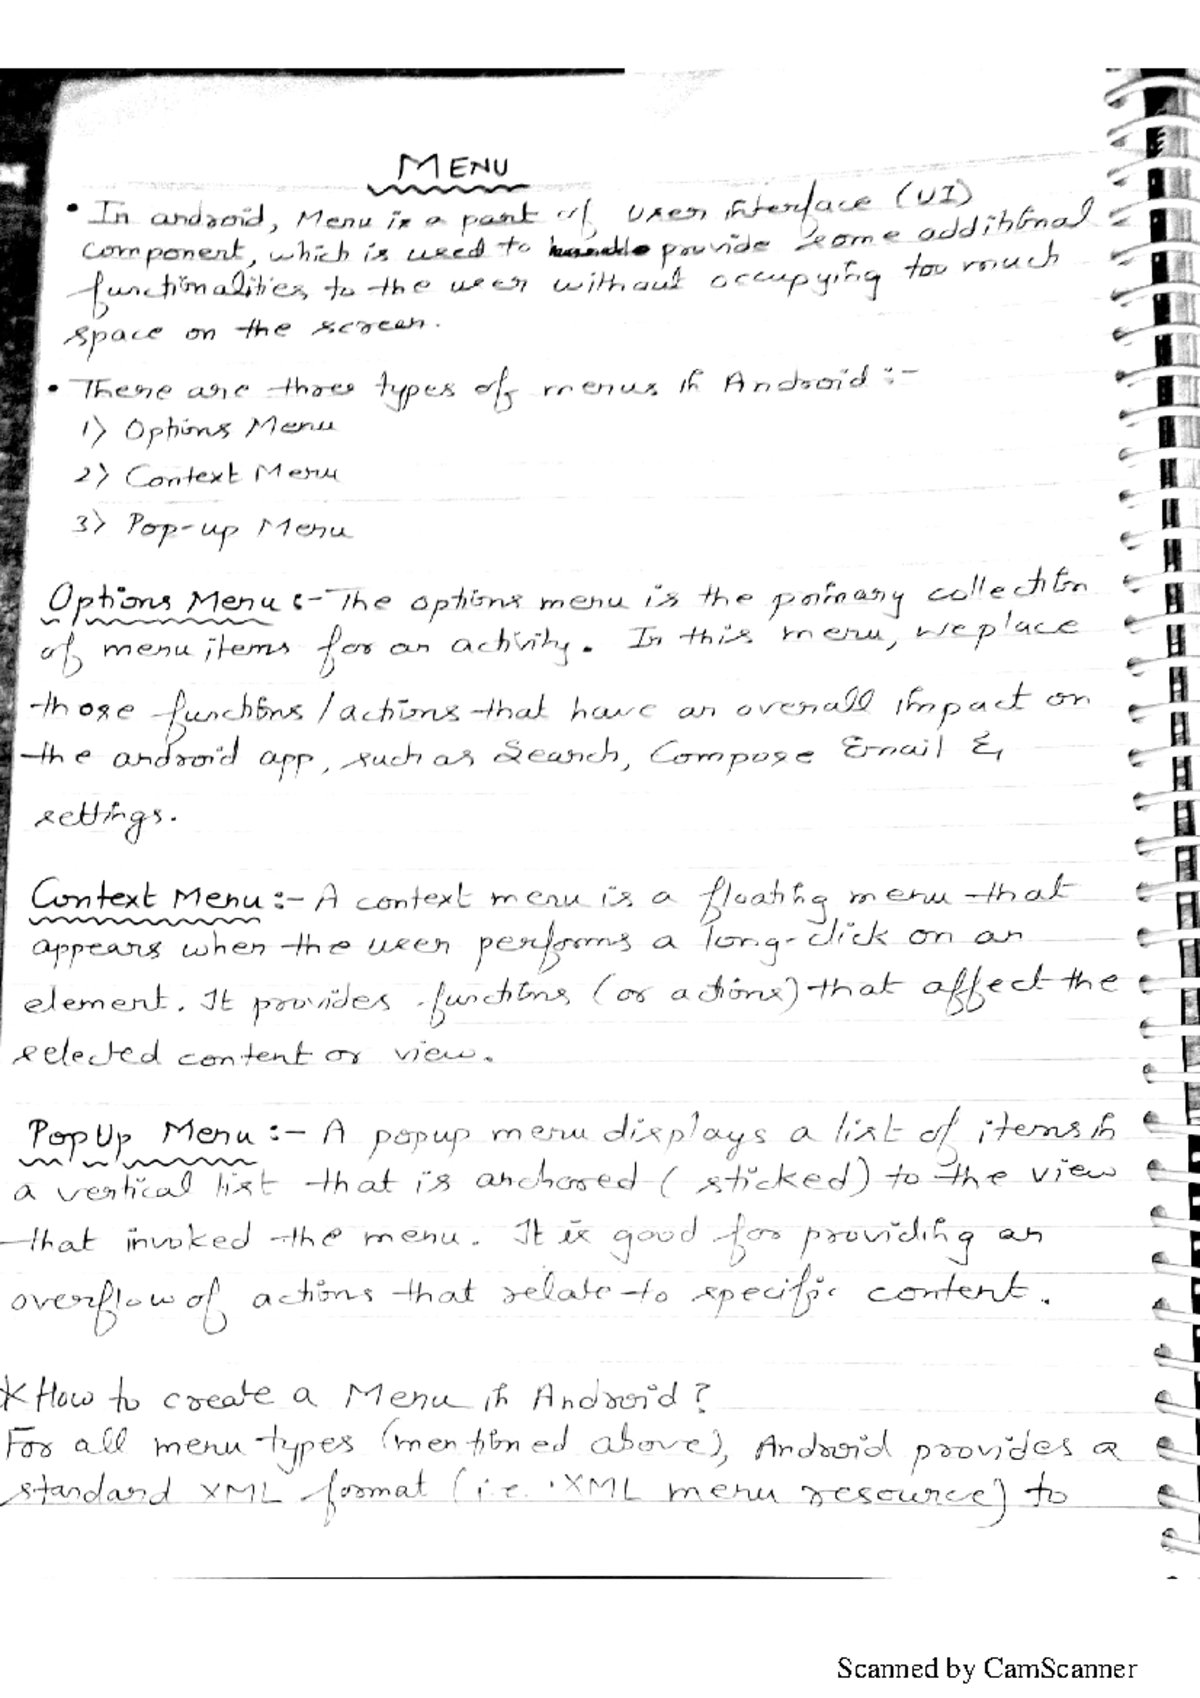 MENU
• In android, Menu is a part of User interface (UI)
component, which is used to provide some additional
functionalities to the user without occupying too much
space on the screen.
• There are three types of menus in Android :-
1) Options Menu
2) Context Menu
3) Pop-up Menu
Options Menu :- The options menu is the primary collection
of menu items for an activity. In this menu, we place
those functions / actions that have an overall impact on
the android app, such as Search, Compose Email &
settings.
Context Menu :- A context menu is a floating menu that
appears when the user performs a long-click on an
element. It provides functions (or actions) that affect the
selected content or view.
PopUp Menu :- A popup menu displays a list of items in
a vertical list that is anchored (sticked) to the view
that invoked the menu. It is good for providing an
overflow of actions that relate to specific content.
* How to create a Menu in Android?
For all menu types (mentioned above), Android provides a
standard XML format (i.e. XML menu resource) to
Scanned by CamScanner